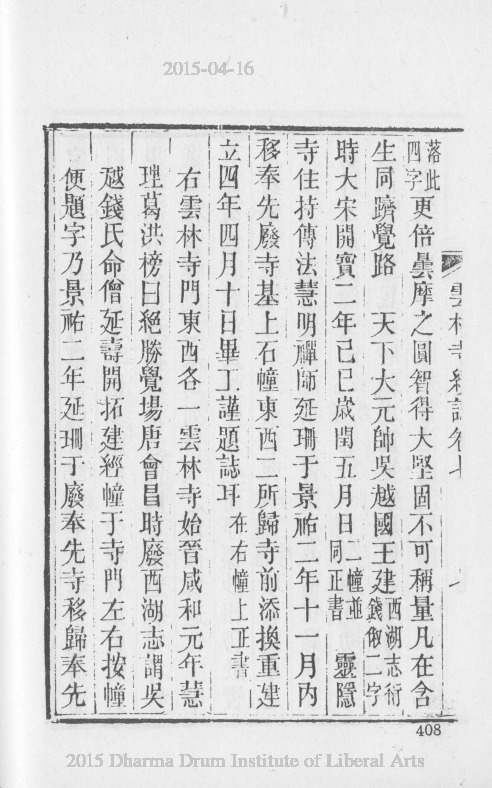 2015-04-16
雲林寺續誌卷七
落此四字更倍曇摩之圓智得大堅固不可稱量凡在含
生同躋覺路　天下大元帥吳越國王建西湖志衍錢俶二字
時大宋開寶二年己巳歲閏五月日二幢並同正書　靈隱
寺住持傳法慧明禪師延珊于景祐二年十一月內
移奉先廢寺基上石幢東西二所歸寺前添換重建
立四年四月十日畢工謹題誌耳在右幢上正書
右雲林寺門東西各一雲林寺始晉咸和元年慧
理葛洪榜曰絕勝覺場唐會昌時廢西湖志謂吳
越錢氏命僧延壽開拓建經幢于寺門左右按幢
便題字乃景祐二年延珊于廢奉先寺移歸奉先
408
2015 Dharma Drum Institute of Liberal Arts